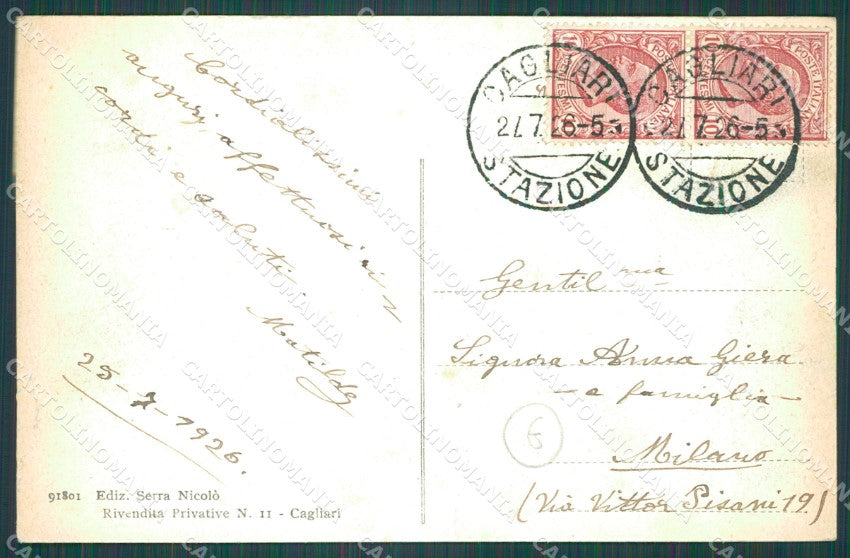 Cordialissimi
auguri, affettuosi ri
cordi e saluti
Matilde
25-7-1926.
91801 Ediz. Serra Nicolò
Rivendita Privative N. 11 - Cagliari
POSTE ITALIANE
CAGLIARI
27.7.26-5
STAZIONE
POSTE ITALIANE
CAGLIARI
27.7.26-5
STAZIONE
Gentil ma
Signora Anna Giera
- e famiglia -
6
Milano
(Via Vittor Pisani 19)
CARTOLINOMANIA